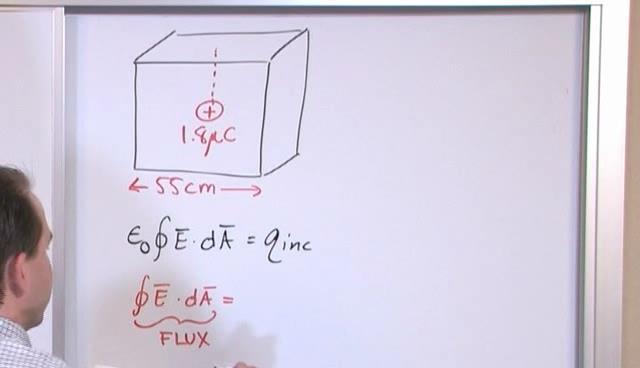 +
1.8μC
← 55cm →
ε₀∮Ē·dĀ = qinc
∮Ē·dĀ =
FLUX